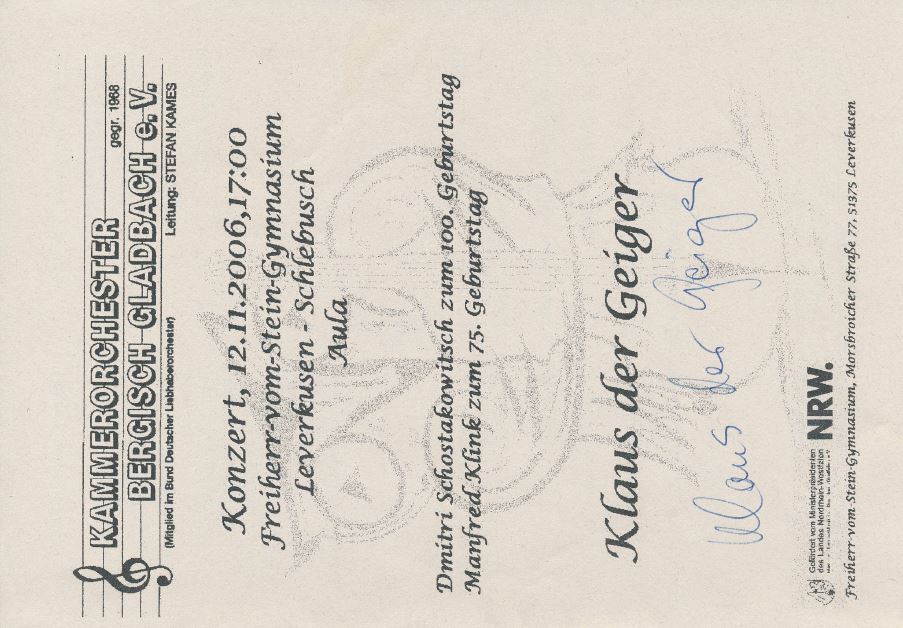 KAMMERORCHESTER gegr. 1968
BERGISCH GLADBACH e.V.
(Mitglied im Bund Deutscher Liebhaberorchester) Leitung: STEFAN KAMES
Konzert, 12.11.2006,17:00
Freiherr-vom-Stein-Gymnasium
Leverkusen - Schlebusch
Aula
Dmitri Schostakowitsch zum 100. Geburtstag
Manfred Klink zum 75. Geburtstag
Klaus der Geiger
Klaus der Geiger
Gefördert vom Ministerpräsidenten
des Landes Nordrhein-Westfalen
NRW.
Freiherr-vom-Stein-Gymnasium, Morsbroicher Straße 77, 51375 Leverkusen